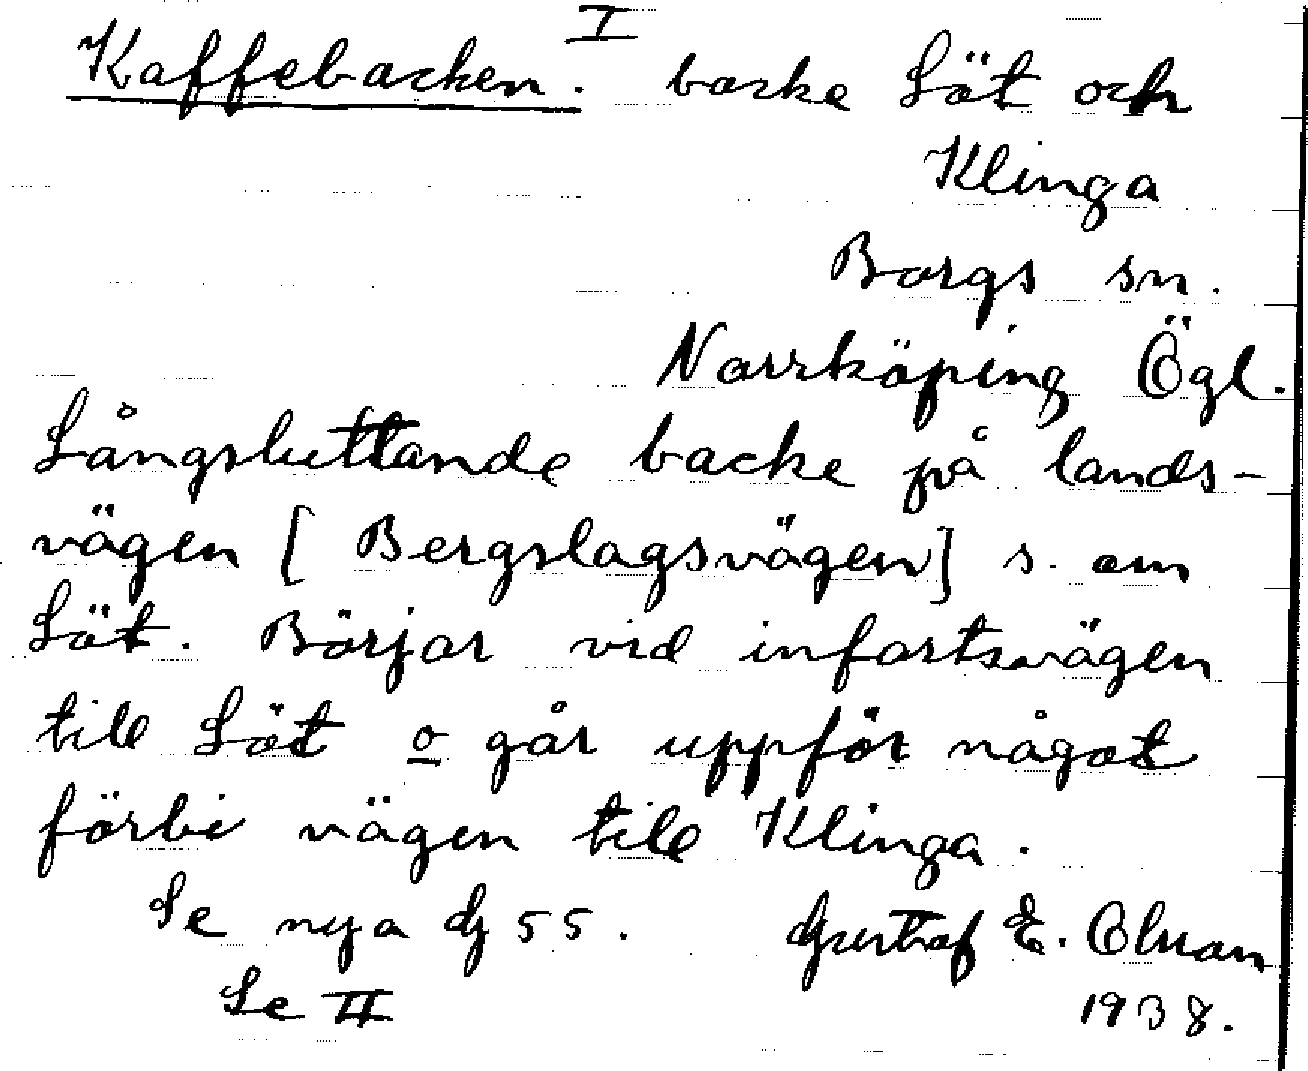 Kaffebacken. I backe Löt och
Klinga
Borgs sn.
Norrköping Ögl.
Långsluttande backe på lands-
vägen [Bergslagsvägen] s. om
Löt. Börjar vid infartsvägen
till Löt o går uppför något
förbi vägen till Klinga.
Se nya dj 55. Gustaf E. Olsson
Se II 1938.